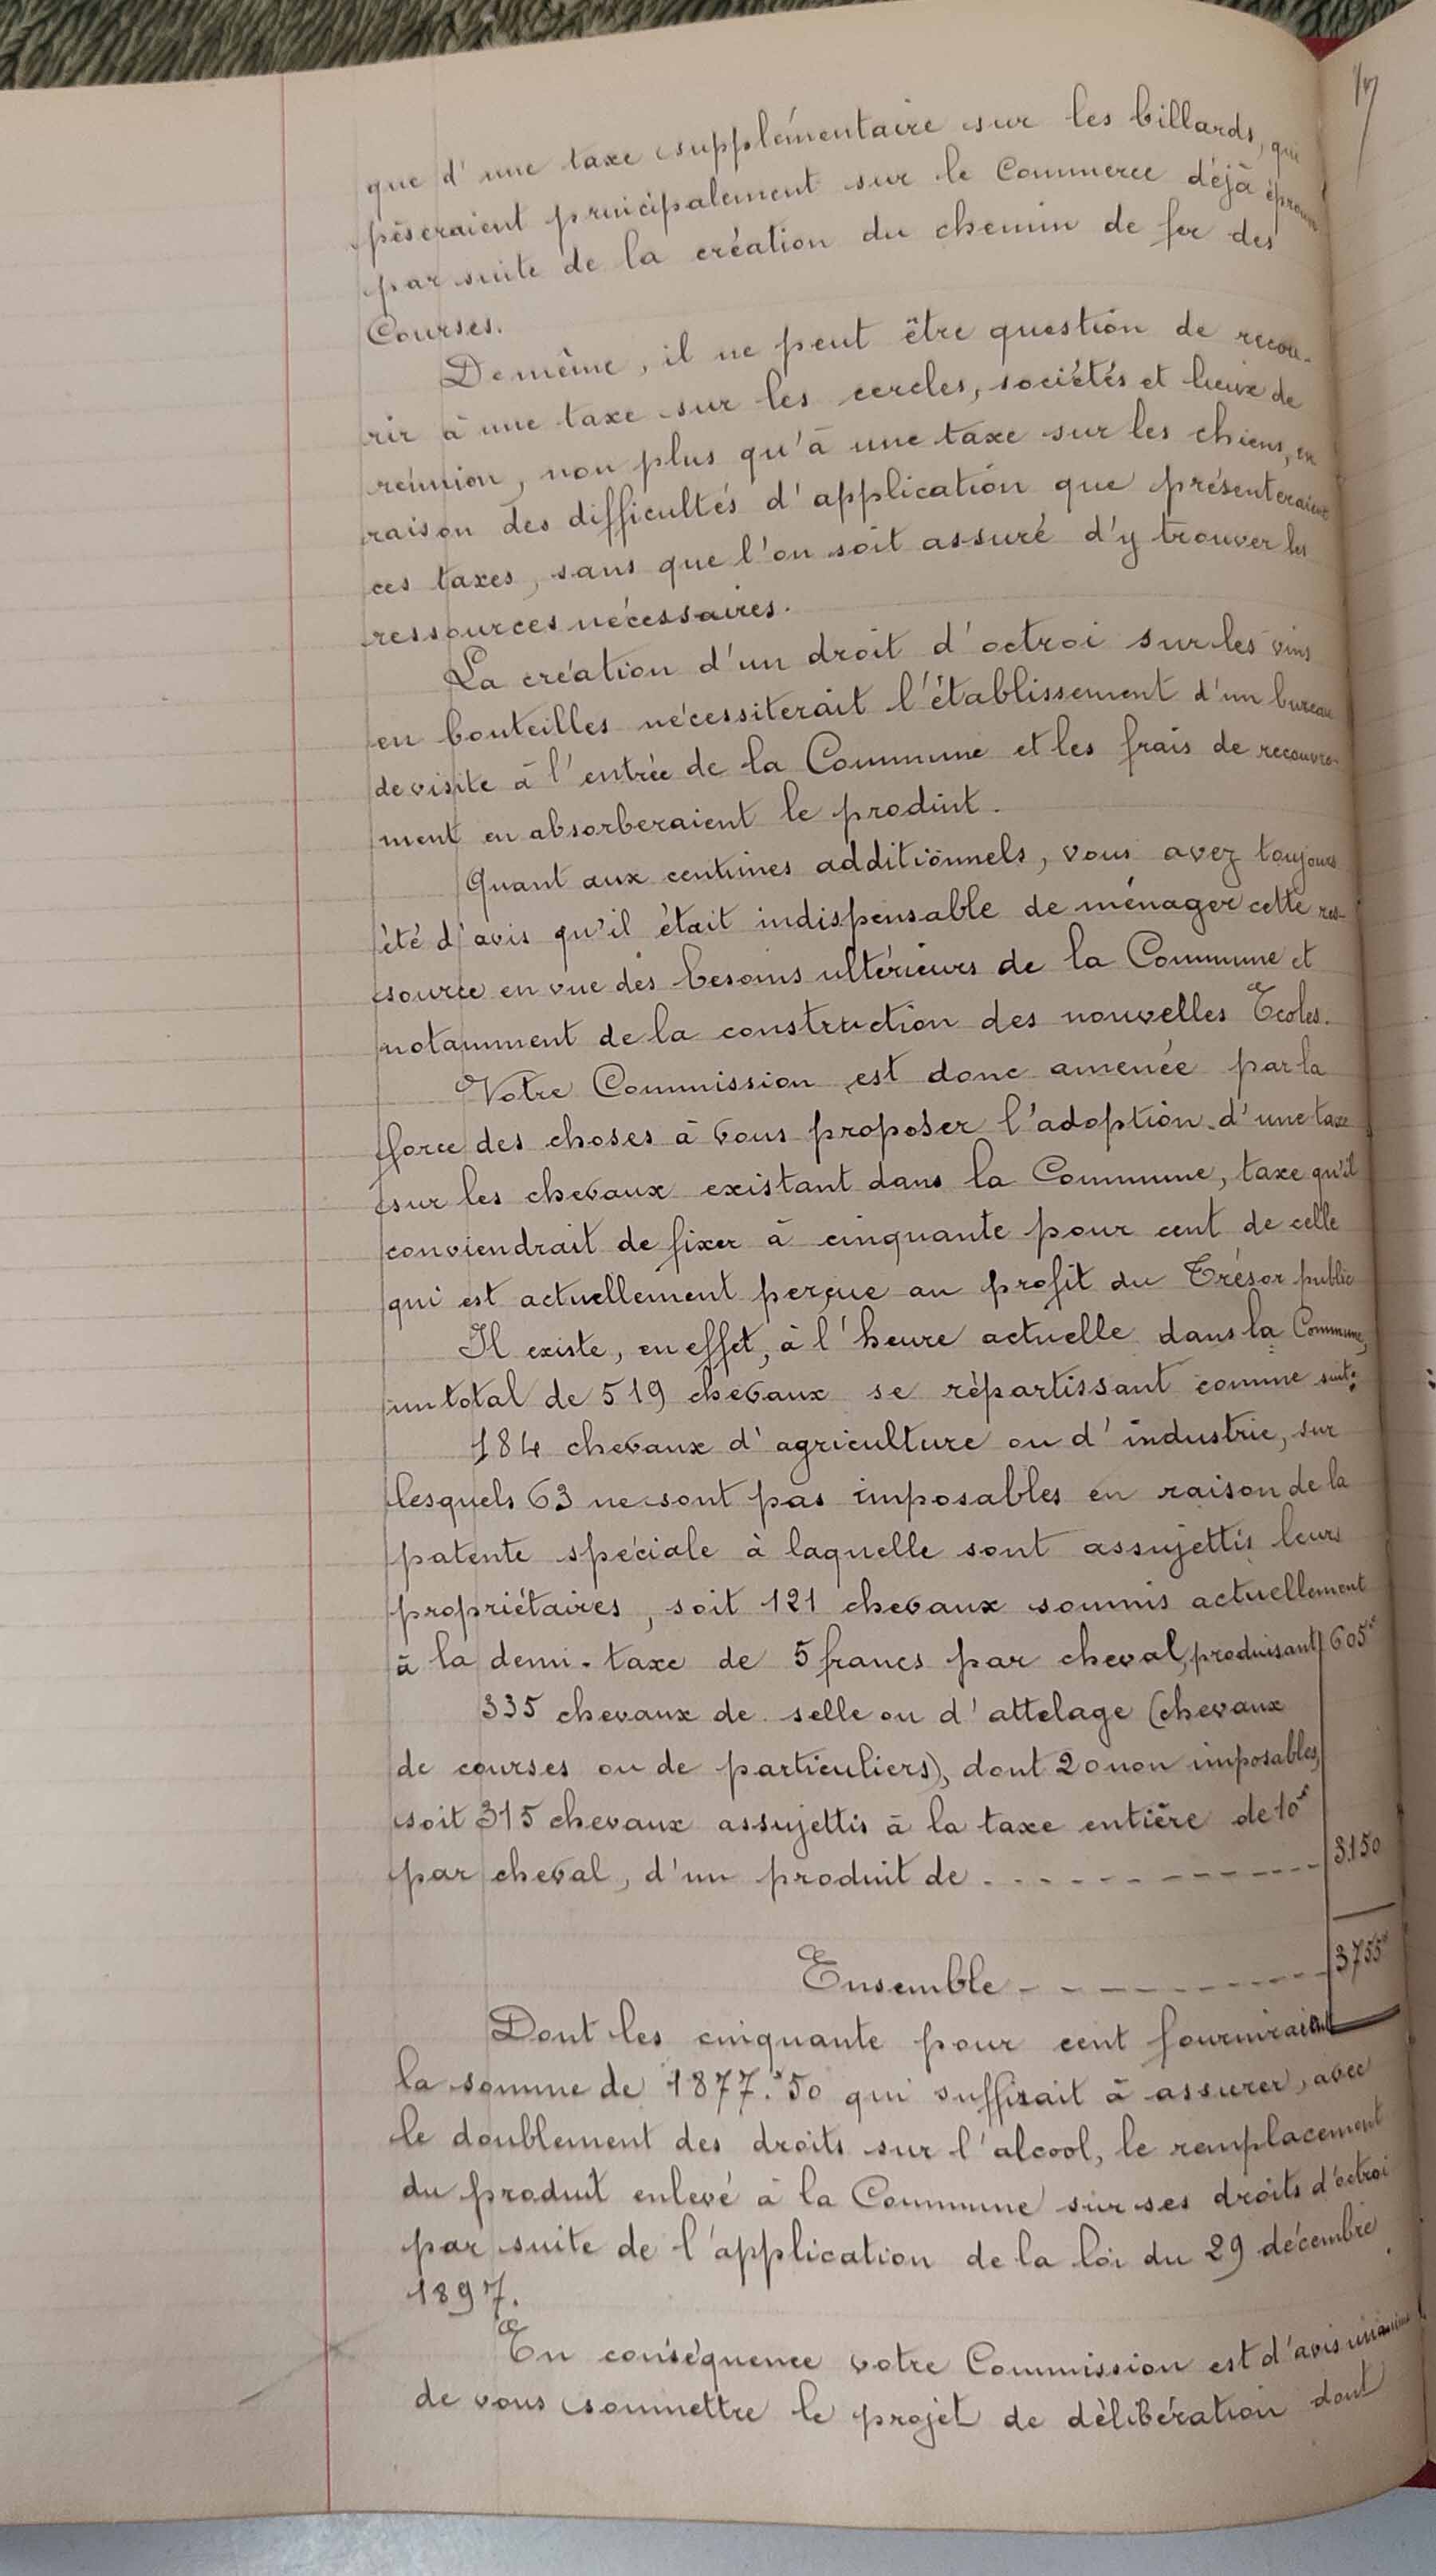 que d'une taxe supplémentaire sur les billards, qui
pèseraient principalement sur le Commerce déjà
par suite de la création du chemin de fer des
Courses.
De même, il ne peut être question de recou-
rir à une taxe sur les cercles, sociétés et lieux de
réunion, non plus qu'à une taxe sur les chiens, en
raison des difficultés d'application que présenteraient
ces taxes, sans que l'on soit assuré d'y trouver les
ressources nécessaires.
La création d'un droit d'octroi sur les vins
en bouteilles nécessiterait l'établissement d'un bureau
de visite à l'entrée de la Commune et les frais de recouvre-
ment en absorberaient le produit.
Quant aux centimes additionnels, vous avez toujours
été d'avis qu'il était indispensable de ménager cette res-
source en vue des besoins ultérieurs de la Commune et
notamment de la construction des nouvelles Ecoles.
Votre Commission est donc amenée par la
force des choses à vous proposer l'adoption d'une taxe
sur les chevaux existant dans la Commune, taxe qu'il
conviendrait de fixer à cinquante pour cent de celle
qui est actuellement perçue au profit du Trésor public
Il existe, en effet, à l'heure actuelle dans la Commune,
un total de 519 chevaux se répartissant comme suit:
184 chevaux d'agriculture ou d'industrie, sur
lesquels 63 ne sont pas imposables en raison de la
patente spéciale à laquelle sont assujettis leurs
propriétaires, soit 121 chevaux soumis actuellement
à la demi-taxe de 5 francs par cheval, produisant 605 fr
335 chevaux de selle ou d'attelage (chevaux
de courses ou de particuliers), dont 20 non imposables,
soit 315 chevaux assujettis à la taxe entière de 10 f
par cheval, d'un produit de - - - - - - - - - - - 3150
Ensemble - - - - - - - - - - 3755 fr
Dont les cinquante pour cent fourniraient
la somme de 1877.f50 qui suffirait à assurer, avec
le doublement des droits sur l'alcool, le remplacement
du produit enlevé à la Commune sur ses droits d'octroi
par suite de l'application de la loi du 29 décembre
1897.
En conséquence votre Commission est d'avis unanime
de vous soumettre le projet de délibération dont